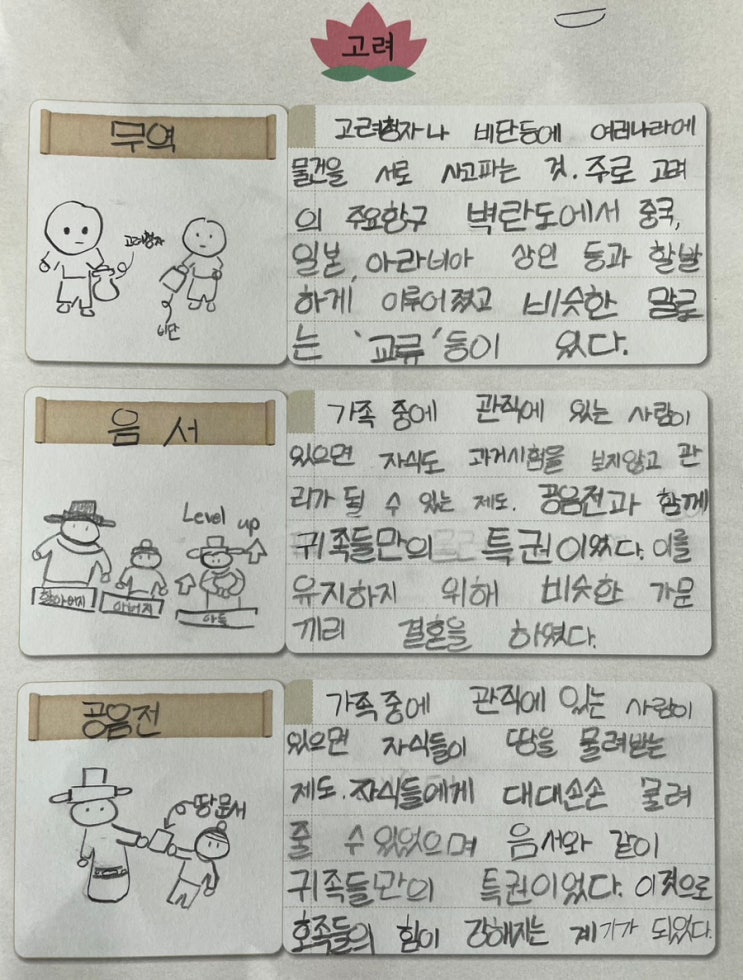 고려
무역
고려청자
비단
고려청자나 비단등에 여러나라에
물건을 서로 사고파는 것. 주로 고려
의 주요항구 벽란도에서 중국,
일본, 아라비아 상인 등과 활발
하게 이루어졌고 비슷한 말로
는 '교류'등이 있다.
음서
Level up
할아버지
아버지
아들
가족 중에 관직에 있는 사람이
있으면 자식도 과거시험을 보지않고 관
리가 될 수 있는 제도. 공음전과 함께
귀족들만의 특권이었다. 이를
유지하지 위해 비슷한 가문
끼리 결혼을 하였다.
공음전
땅문서
가족 중에 관직에 있는 사람이
있으면 자식들이 땅을 물려받는
제도. 자식들에게 대대손손 물려
줄 수 있었으며 음서와 같이
귀족들만의 특권이었다. 이것으로
호족들의 힘이 강해지는 계기가 되었다.